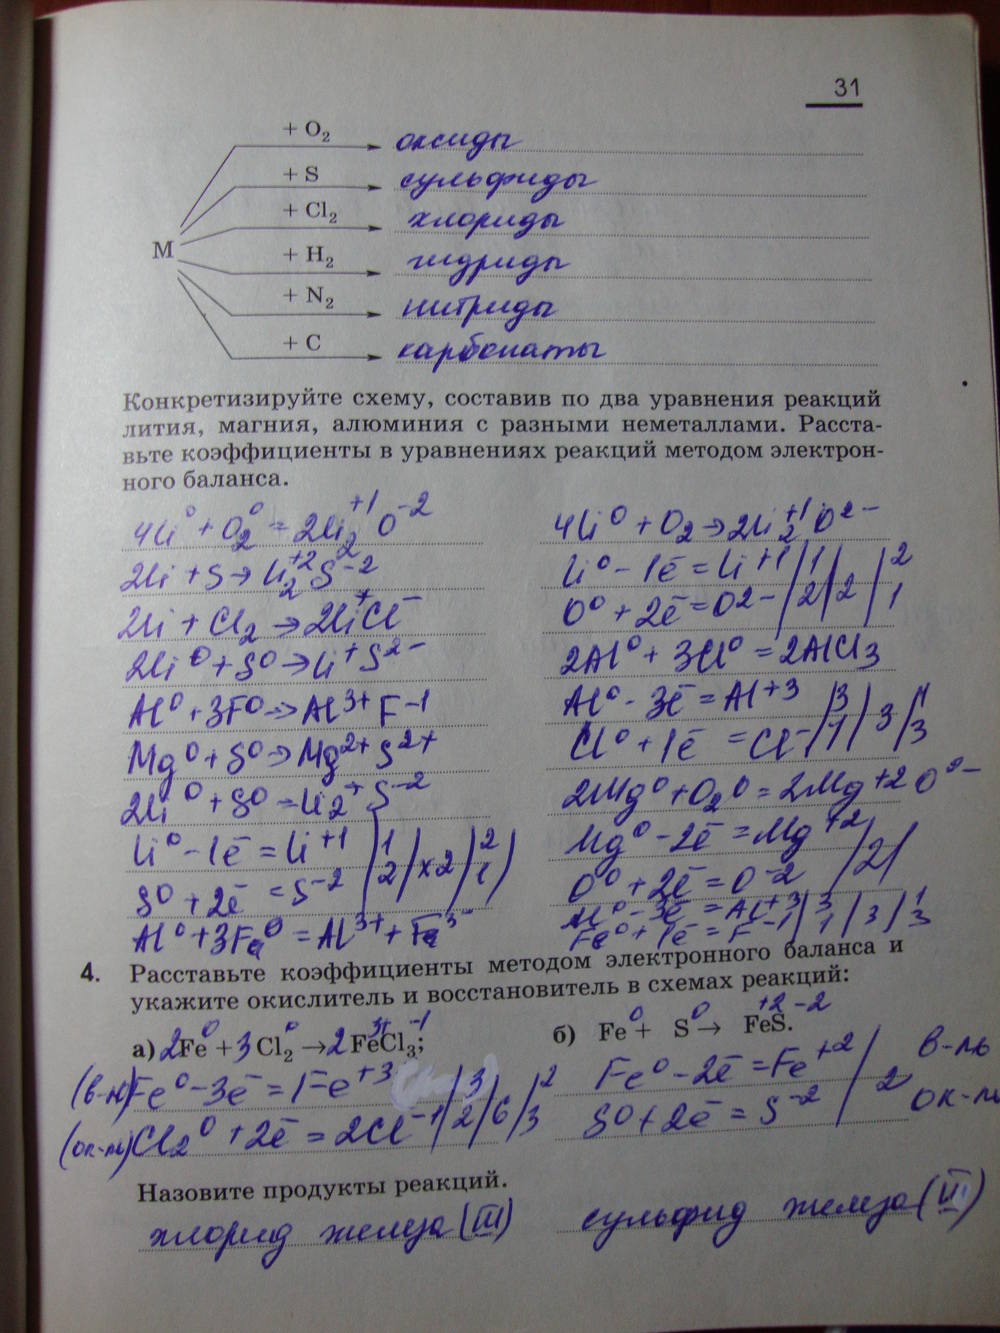 31
+ O₂ оксиды
+ S сульфиды
+ Cl₂ хлориды
M
+ H₂ гидриды
+ N₂ нитриды
+ C карбонаты
Конкретизируйте схему, составив по два уравнения реакций
лития, магния, алюминия с разными неметаллами. Расста-
вьте коэффициенты в уравнениях реакций методом электрон-
ного баланса.
4Li⁰ + O₂⁰ = 2Li₂⁺¹O⁻²
2Li + S → Li₂⁺²S⁻²
2Li + Cl₂ → 2Li⁺Cl⁻
2Li⁰ + S⁰ → Li⁺S²⁻
Al⁰ + 3F⁰ → Al³⁺F⁻¹
Mg⁰ + S⁰ → Mg²⁺S²⁺
2Li⁰ + S⁰ = Li₂⁺S⁻²
Li⁰ - 1ē = Li⁺¹ | 1 | ×2 | 2
S⁰ + 2ē = S⁻² | 2 | | 1
Al⁰ + 3Fe⁰ = Al³⁺ + Fe³⁻
4Li⁰ + O₂ → 2Li₂⁺¹O²⁻
Li⁰ - 1ē = Li⁺¹ | 1 | | 2
O⁰ + 2ē = O²⁻ | 2 | 2 | 1
2Al⁰ + 3Cl⁰ = 2AlCl₃
Al⁰ - 3ē = Al⁺³ | 3 | | 1
Cl⁰ + 1ē = Cl⁻ | 1 | 3 | 3
2Mg⁰ + O₂⁰ = 2Mg⁺²O²⁻
Mg⁰ - 2ē = Mg⁺²
O⁰ + 2ē = O⁻² | 2 |
Al⁰ - 3ē = Al⁺³ | 3 | | 1
Fe⁰ + 1ē = F⁻¹ | 1 | 3 | 3
4. Расставьте коэффициенты методом электронного баланса и
укажите окислитель и восстановитель в схемах реакций:
а) 2Fe⁰ + 3Cl₂⁰ → 2Fe³⁺Cl₃⁻¹;
(в-ль) Fe⁰ - 3ē = Fe⁺³ | 3 | | 2
(ок-ль) Cl₂⁰ + 2ē = 2Cl⁻¹ | 2 | 6 | 3
б) Fe⁰ + S⁰ → Fe⁺²S⁻².
Fe⁰ - 2ē = Fe⁺² | в-ль
S⁰ + 2ē = S⁻² | 2 ок-ль
Назовите продукты реакций.
хлорид железа (III)
сульфид железа (II)